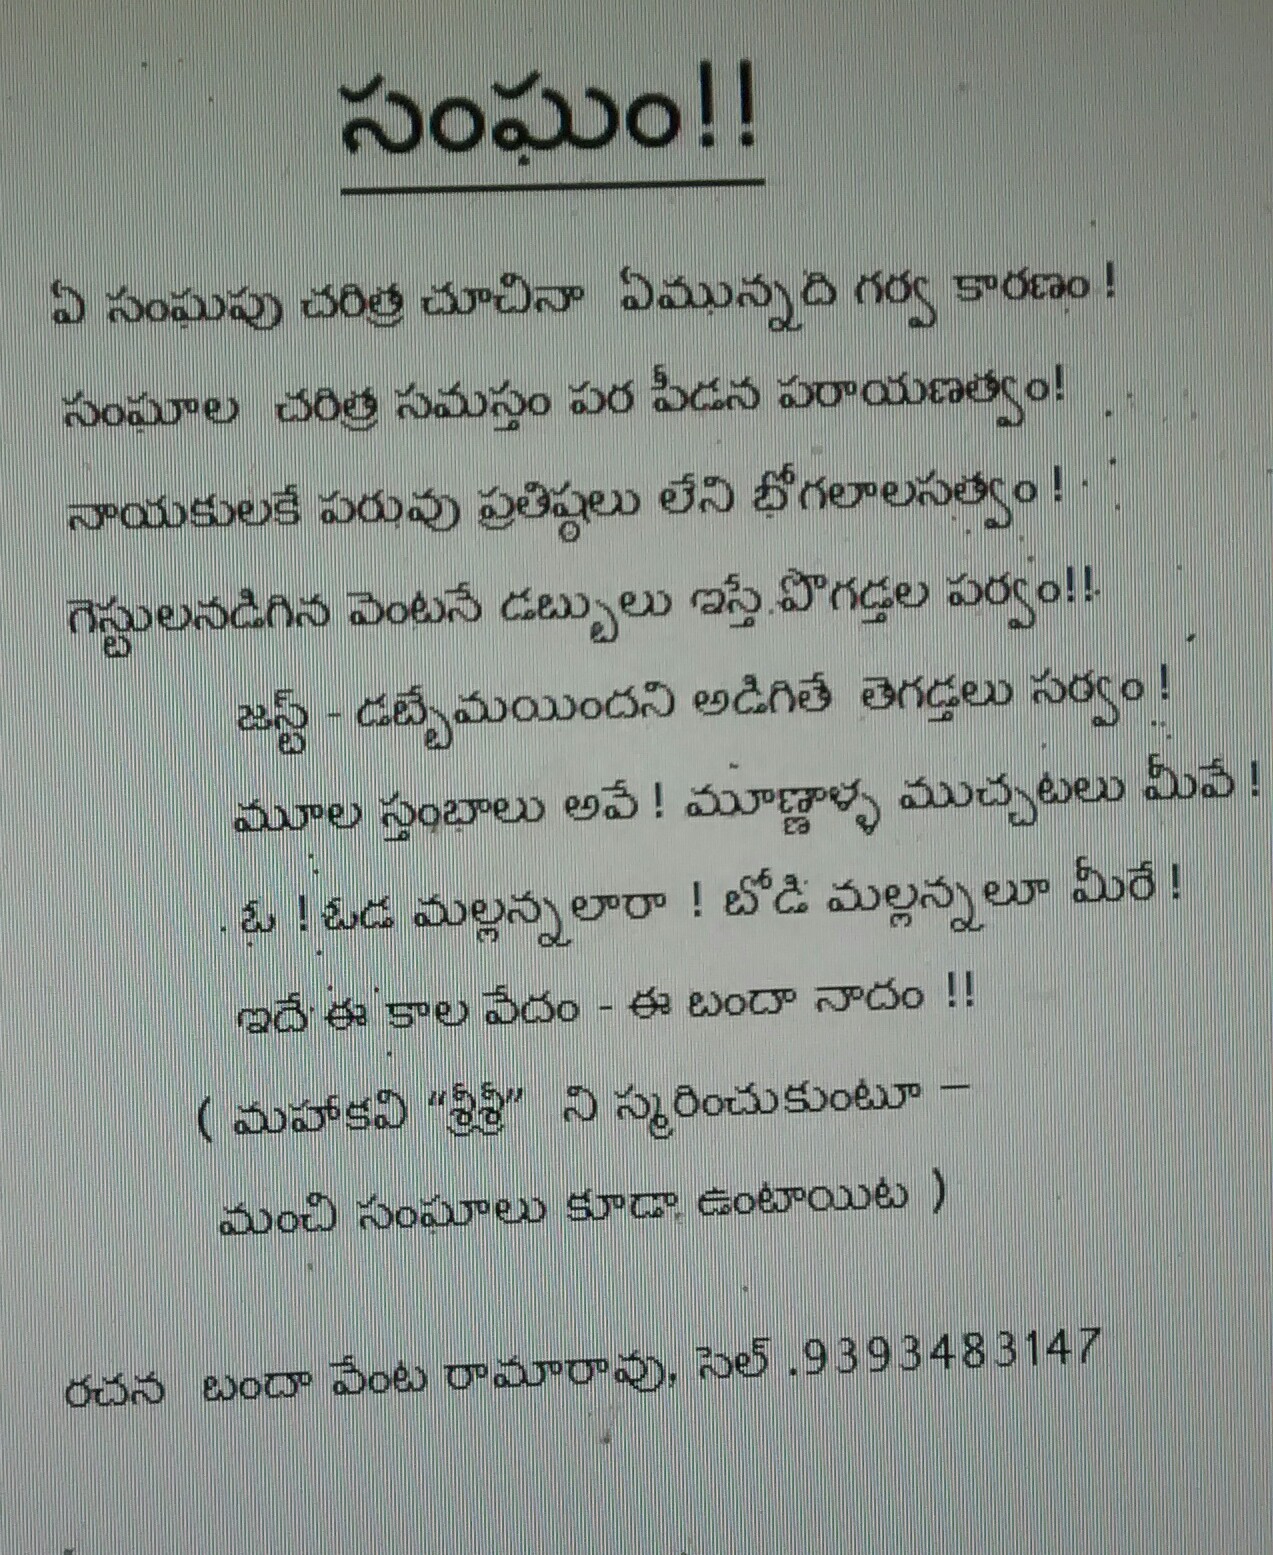 సంఘం!!
ఏ సంఘపు చరిత్ర చూచినా ఏమున్నది గర్వ కారణం !
సంఘాల చరిత్ర సమస్తం పర పీడన పరాయణత్వం!
నాయకులకే పరువు ప్రతిష్ఠలు లేని భోగలాలసత్వం !
గెస్టులనడిగిన వెంటనే డబ్బులు ఇస్తే పొగడ్తల పర్వం!!
జస్ట్ - డబ్బేమయిందని అడిగితే తెగడ్తలు సర్వం !
మూల స్తంబాలు అవే ! మూణ్ణాళ్ళ ముచ్చటలు మీవే !
ఓ ! ఓడ మల్లన్నలారా ! బోడి మల్లన్నలూ మీరే !
ఇదే ఈ కాల వేదం - ఈ బందా నాదం !!
( మహాకవి "శ్రీశ్రీ" ని స్మరించుకుంటూ –
మంచి సంఘాలు కూడా ఉంటాయిట )
రచన బందా వేంట రామారావు, సెల్ .9393483147